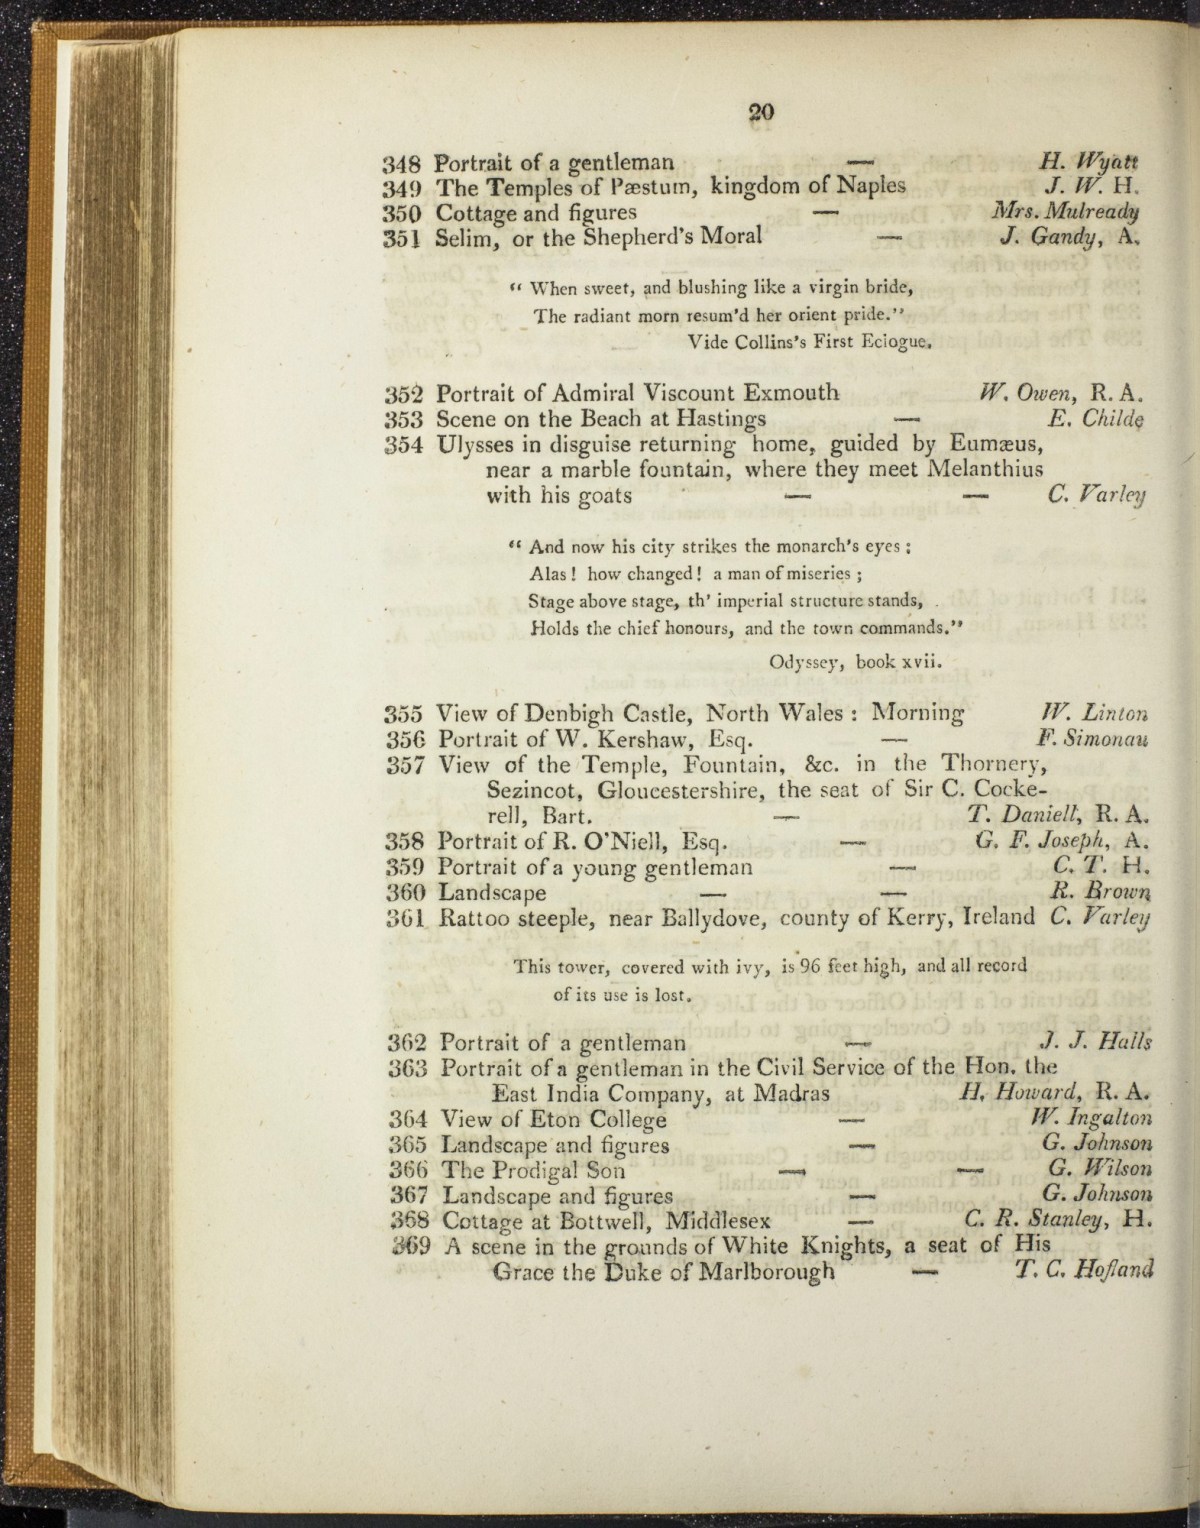 20
348 Portrait of a gentleman — H. Wyatt
349 The Temples of Pæstum, kingdom of Naples J. W. H.
350 Cottage and figures — Mrs. Mulready
351 Selim, or the Shepherd's Moral — J. Gandy, A.
“ When sweet, and blushing like a virgin bride,
The radiant morn resum'd her orient pride.”
Vide Collins's First Eclogue.
352 Portrait of Admiral Viscount Exmouth W. Owen, R. A.
353 Scene on the Beach at Hastings — E. Childe
354 Ulysses in disguise returning home, guided by Eumæus,
near a marble fountain, where they meet Melanthius
with his goats — — C. Varley
“ And now his city strikes the monarch's eyes ;
Alas ! how changed ! a man of miseries ;
Stage above stage, th' imperial structure stands,
Holds the chief honours, and the town commands.”
Odyssey, book xvii.
355 View of Denbigh Castle, North Wales : Morning W. Linton
356 Portrait of W. Kershaw, Esq. — F. Simonau
357 View of the Temple, Fountain, &c. in the Thornery,
Sezincot, Gloucestershire, the seat of Sir C. Cocke-
rell, Bart. — T. Daniell, R. A.
358 Portrait of R. O'Niell, Esq. — G. F. Joseph, A.
359 Portrait of a young gentleman — C. T. H.
360 Landscape — — R. Brown
361 Rattoo steeple, near Ballydove, county of Kerry, Ireland C. Varley
This tower, covered with ivy, is 96 feet high, and all record
of its use is lost.
362 Portrait of a gentleman — J. J. Halls
363 Portrait of a gentleman in the Civil Service of the Hon. the
East India Company, at Madras H. Howard, R. A.
364 View of Eton College — W. Ingalton
365 Landscape and figures — G. Johnson
366 The Prodigal Son — — G. Wilson
367 Landscape and figures — G. Johnson
368 Cottage at Bottwell, Middlesex — C. R. Stanley, H.
369 A scene in the grounds of White Knights, a seat of His
Grace the Duke of Marlborough — T. C. Hofland